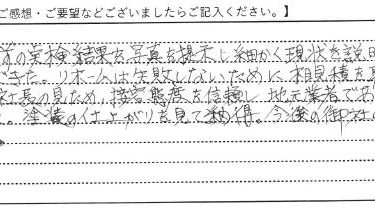 ご感想・ご要望などございましたらご記入ください。】
の実検結果を写真を提示し細かく現状を説
できた。リホームは失敗しないために相見積を
長の見ため、接客態度を信頼し、地元業者で
塗装の仕上がりを見て納得。今後の御社